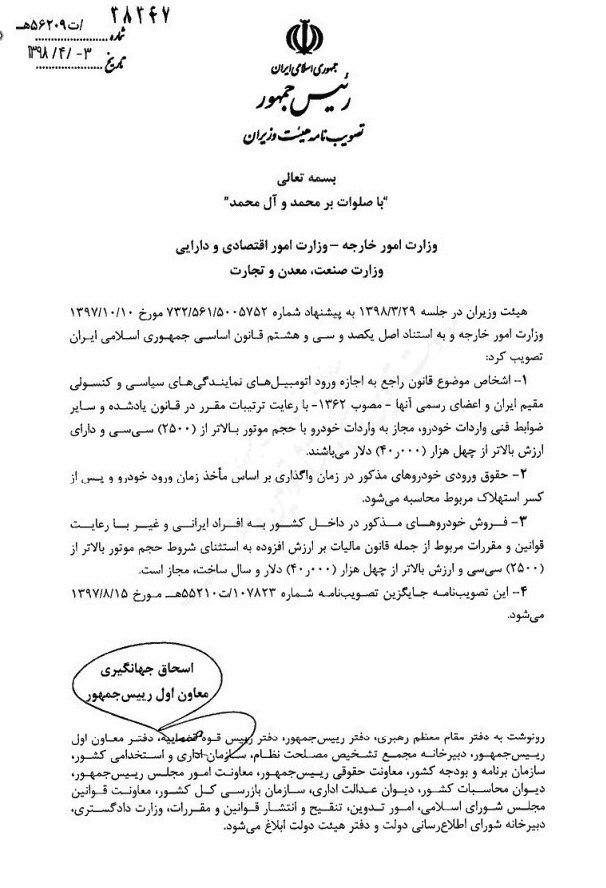 ۳۸۳۴۷ /ت۵۶۲۰۹هـ
شماره
۱۳۹۸/۴/۰۳
تاریخ
جمهوری اسلامی ایران
رئیس جمهور
تصویب نامه هیئت وزیران
بسمه تعالی
"با صلوات بر محمد و آل محمد"
وزارت امور خارجه – وزارت امور اقتصادی و دارایی
وزارت صنعت، معدن و تجارت
هیئت وزیران در جلسه ۱۳۹۸/۳/۲۹ به پیشنهاد شماره ۷۳۲/۵۶۱/۵۰۰۵۷۵۲ مورخ ۱۳۹۷/۱۰/۱۰
وزارت امور خارجه و به استناد اصل یکصد و سی و هشتم قانون اساسی جمهوری اسلامی ایران
تصویب کرد:
۱- اشخاص موضوع قانون راجع به اجازه ورود اتومبیل‌های نمایندگی‌های سیاسی و کنسولی
مقیم ایران و اعضای رسمی آنها - مصوب ۱۳۶۲- با رعایت ترتیبات مقرر در قانون یادشده و سایر
ضوابط فنی واردات خودرو، مجاز به واردات خودرو با حجم موتور بالاتر از (۲۵۰۰) سی‌سی و دارای
ارزش بالاتر از چهل هزار (۴۰٫۰۰۰) دلار می‌باشند.
۲- حقوق ورودی خودروهای مذکور در زمان واگذاری بر اساس مأخذ زمان ورود خودرو و پس از
کسر استهلاک مربوط محاسبه می‌شود.
۳- فروش خودروهای مذکور در داخل کشور به افراد ایرانی و غیر با رعایت
قوانین و مقررات مربوط از جمله قانون مالیات بر ارزش افزوده به استثنای شروط حجم موتور بالاتر از
(۲۵۰۰) سی‌سی و ارزش بالاتر از چهل هزار (۴۰٫۰۰۰) دلار و سال ساخت، مجاز است.
۴- این تصویب‌نامه جایگزین تصویب‌نامه شماره ۱۰۷۸۲۳/ت۵۵۲۱۰هـ مورخ ۱۳۹۷/۸/۱۵
می‌شود.
اسحاق جهانگیری
معاون اول رییس‌جمهور
رونوشت به دفتر مقام معظم رهبری، دفتر رییس‌جمهور، دفتر رییس قوه قضاییه، دفتر معاون اول
رییس‌جمهور، دبیرخانه مجمع تشخیص مصلحت نظام، سازمان اداری و استخدامی کشور،
سازمان برنامه و بودجه کشور، معاونت حقوقی رییس‌جمهور، معاونت امور مجلس رییس‌جمهور،
دیوان محاسبات کشور، دیوان عدالت اداری، سازمان بازرسی کل کشور، معاونت قوانین
مجلس شورای اسلامی، امور تدوین، تنقیح و انتشار قوانین و مقررات، وزارت دادگستری،
دبیرخانه شورای اطلاع‌رسانی دولت و دفتر هیئت دولت ابلاغ می‌شود.